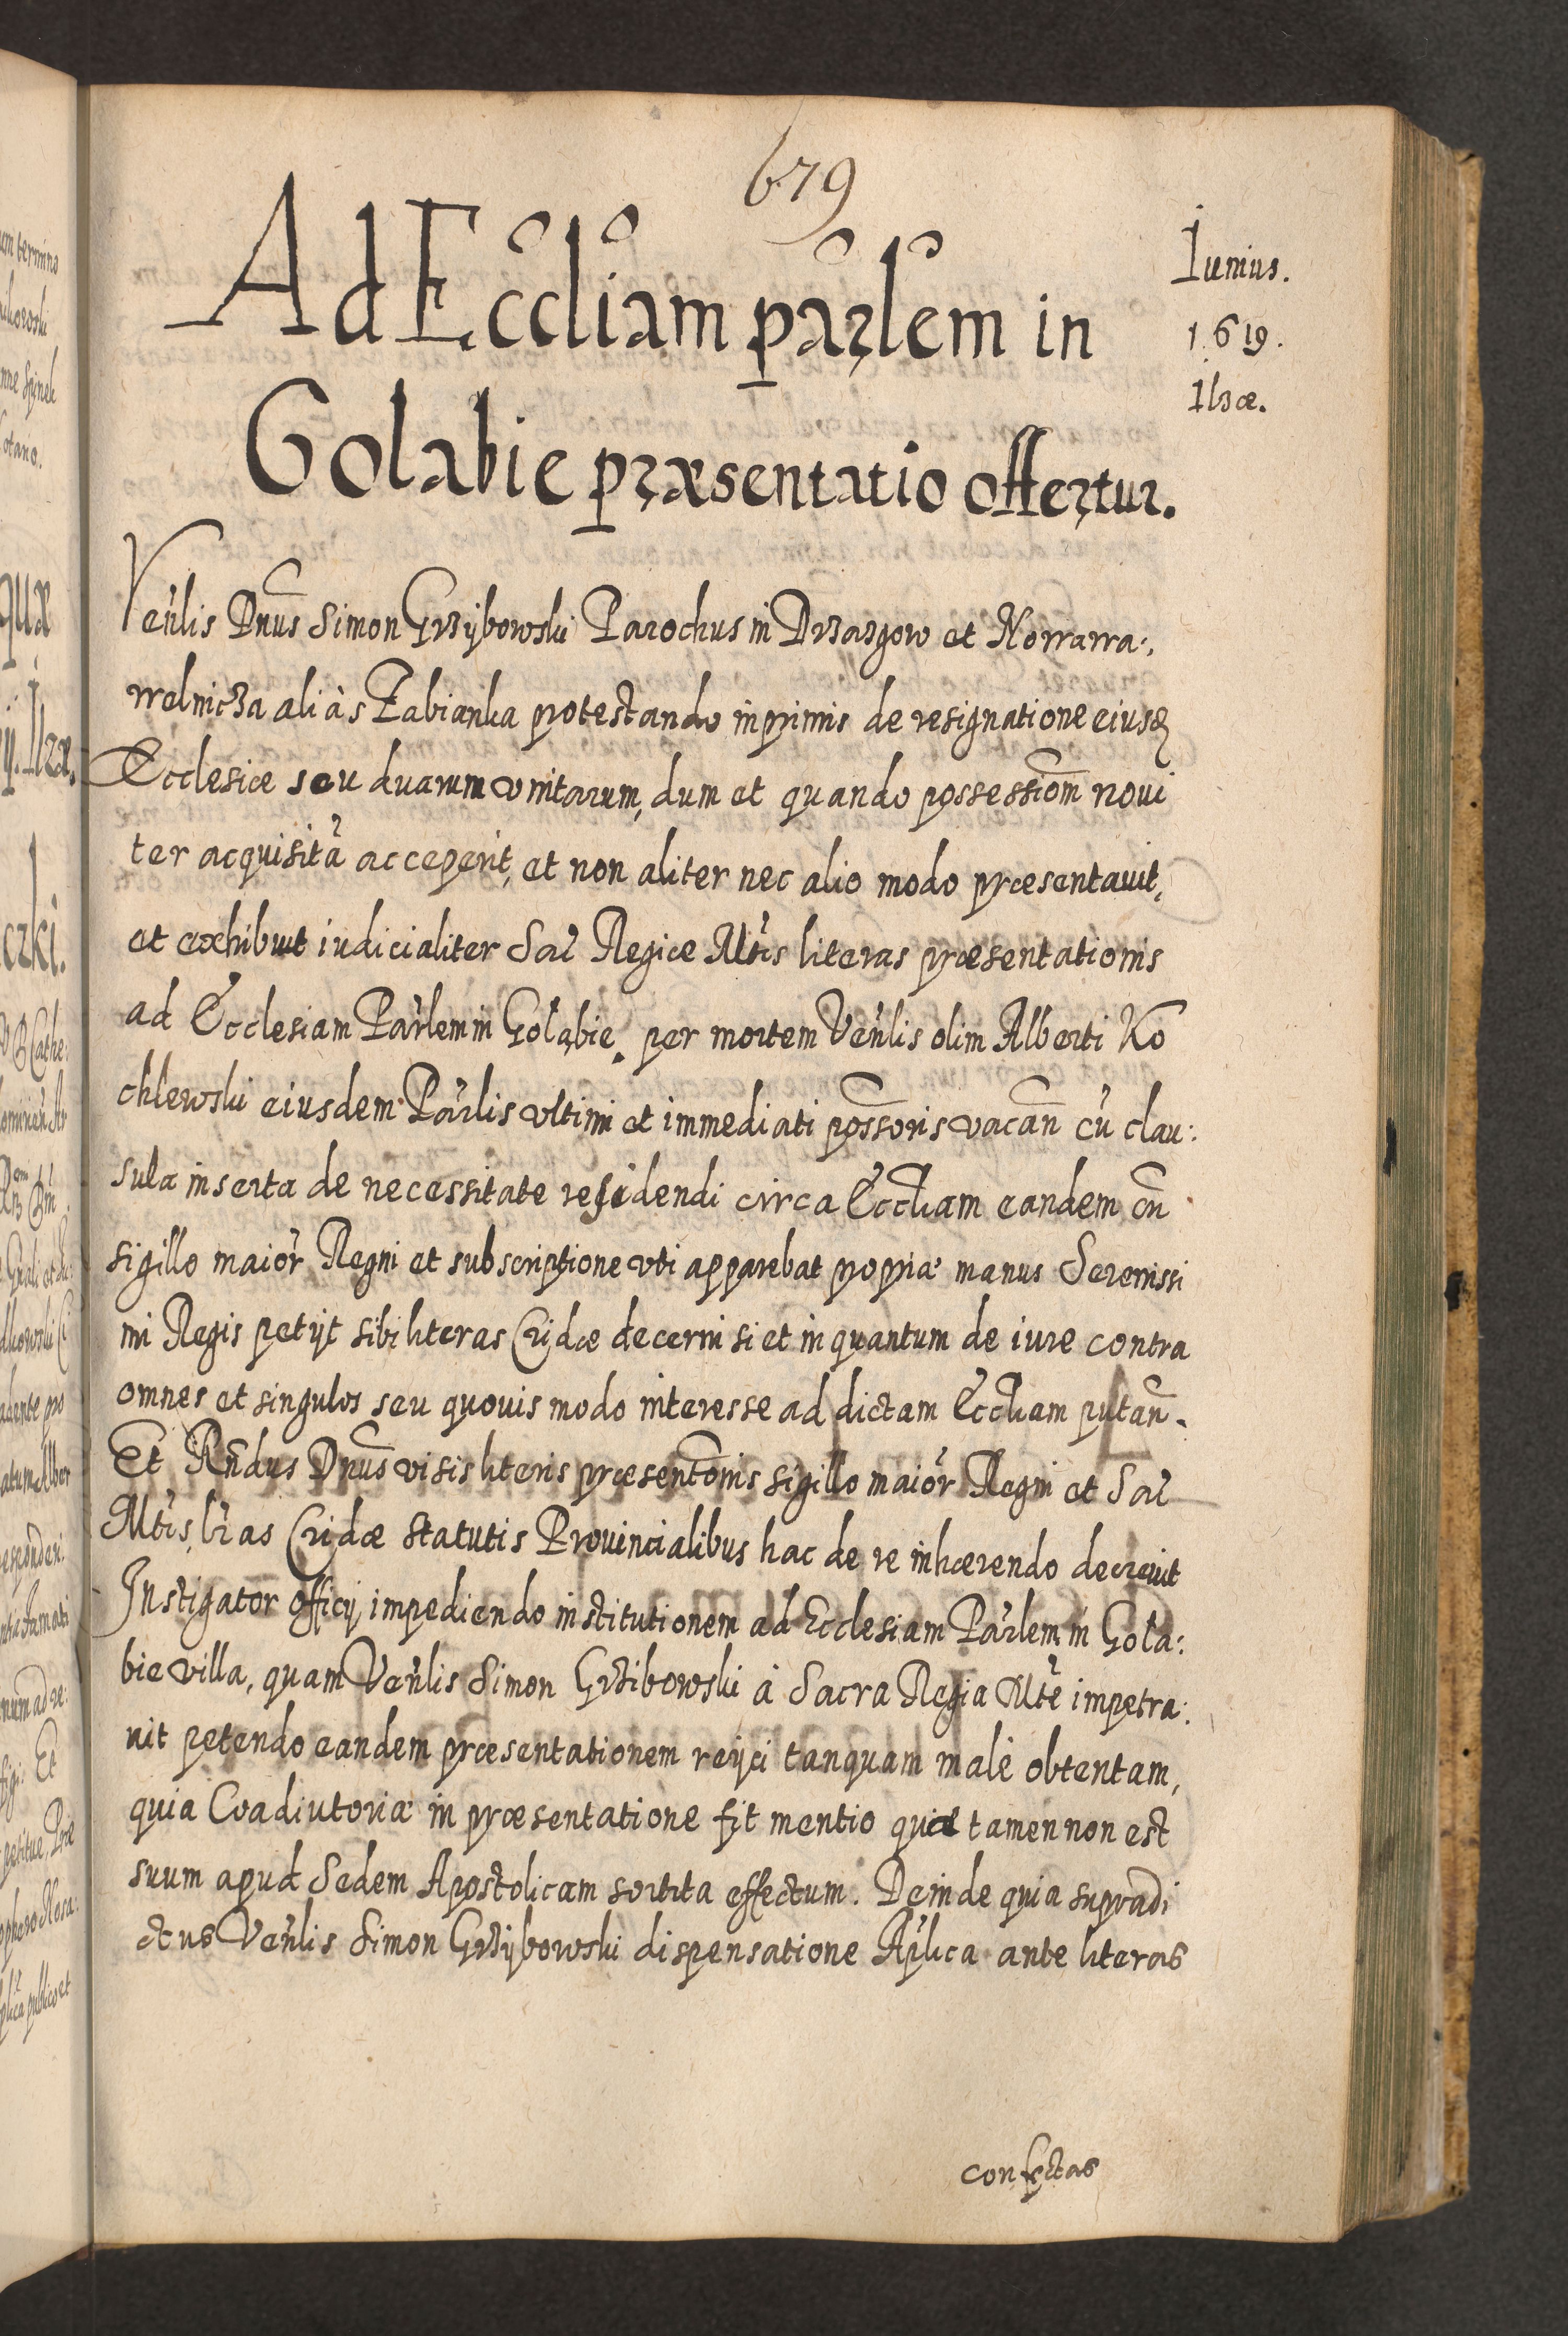 679
Iunius.
1619.
Ilzæ.
Ad Eccliam parlem in
Golabie præsentatio offertur.
Venlis Dnus Simon Grzÿbowski Parochus in Drzazgow et Nowawa:
welnicza aliàs Fabianka protestando inprimis de resignatione eiusq
Ecclesiæ seu duarum unitarum, dum et quando possessiom noui
ter acquisitā acceperit, et non aliter nec alio modo præsentauit,
et exhibuit iudicialiter Sac Regiæ Mtis literas præsentationis
ad Ecclesiam Parlem in Goląbie per mortem Venlis olim Alberti Ko
chlewski eiusdem Parlis vltimi et immediati possoris vacan cū clau:
sula inserta de necessitate residendi circa Eccliam eandem cu
sigillo maior Regni et subscriptione vti apparebat propriæ manus Serenissi
mi Regis petijt sibi literas Cridæ decerni si et in quantum de iure contra
omnes et singulos seu quouis modo interesse ad dictam Eccliam putan.
Et Rndus Dnus visis literis præsentonis sigillo maior Regni et Sac
Mtis, lras Cridæ statutis Prouincialibus hac de re inhærendo decreuit
Instigator officij impediendo institutionem ad Ecclesiam Parlem in Gola:
bie villa, quam Venlis Simon Grzibowski à Sacra Regia Mte impetra:
uit petendo eandem præsentationem reijci tanquam malè obtentam,
quia Coadiutoriæ in præsentatione fit mentio quæ tamen non est
suum apud Sedem Apostolicam sortita effectum. Deinde quia supradi
ctus Venlis Simon Grzÿbowski dispensatione Aplica ante literas
confectas